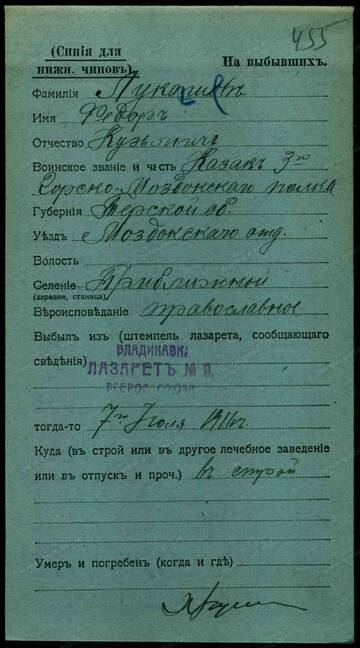 455
(Синія для
нижн. чиновъ)
На выбывшихъ.
Фамилія
Имя Федоръ
Отчество Кузьмичъ
Воинское званіе и часть Казакъ 3го
Горско-Моздокскаго полка
Губернія Терской об.
Уѣздъ Моздокскаго отд.
Волость
Селеніе Приближной
(деревня, станица)
Вѣроисповѣданіе православное
Выбылъ изъ (штемпель лазарета, сообщающаго
свѣдѣнія)
ВЛАДИКАВК
ЛАЗАРЕТЪ № 9.
ВСЕРОС. СОЮЗА
тогда-то 7го Іюля 1916г.
Куда (въ строй или въ другое лечебное заведеніе
или въ отпускъ и проч.) въ строй
Умеръ и погребенъ (когда и гдѣ)